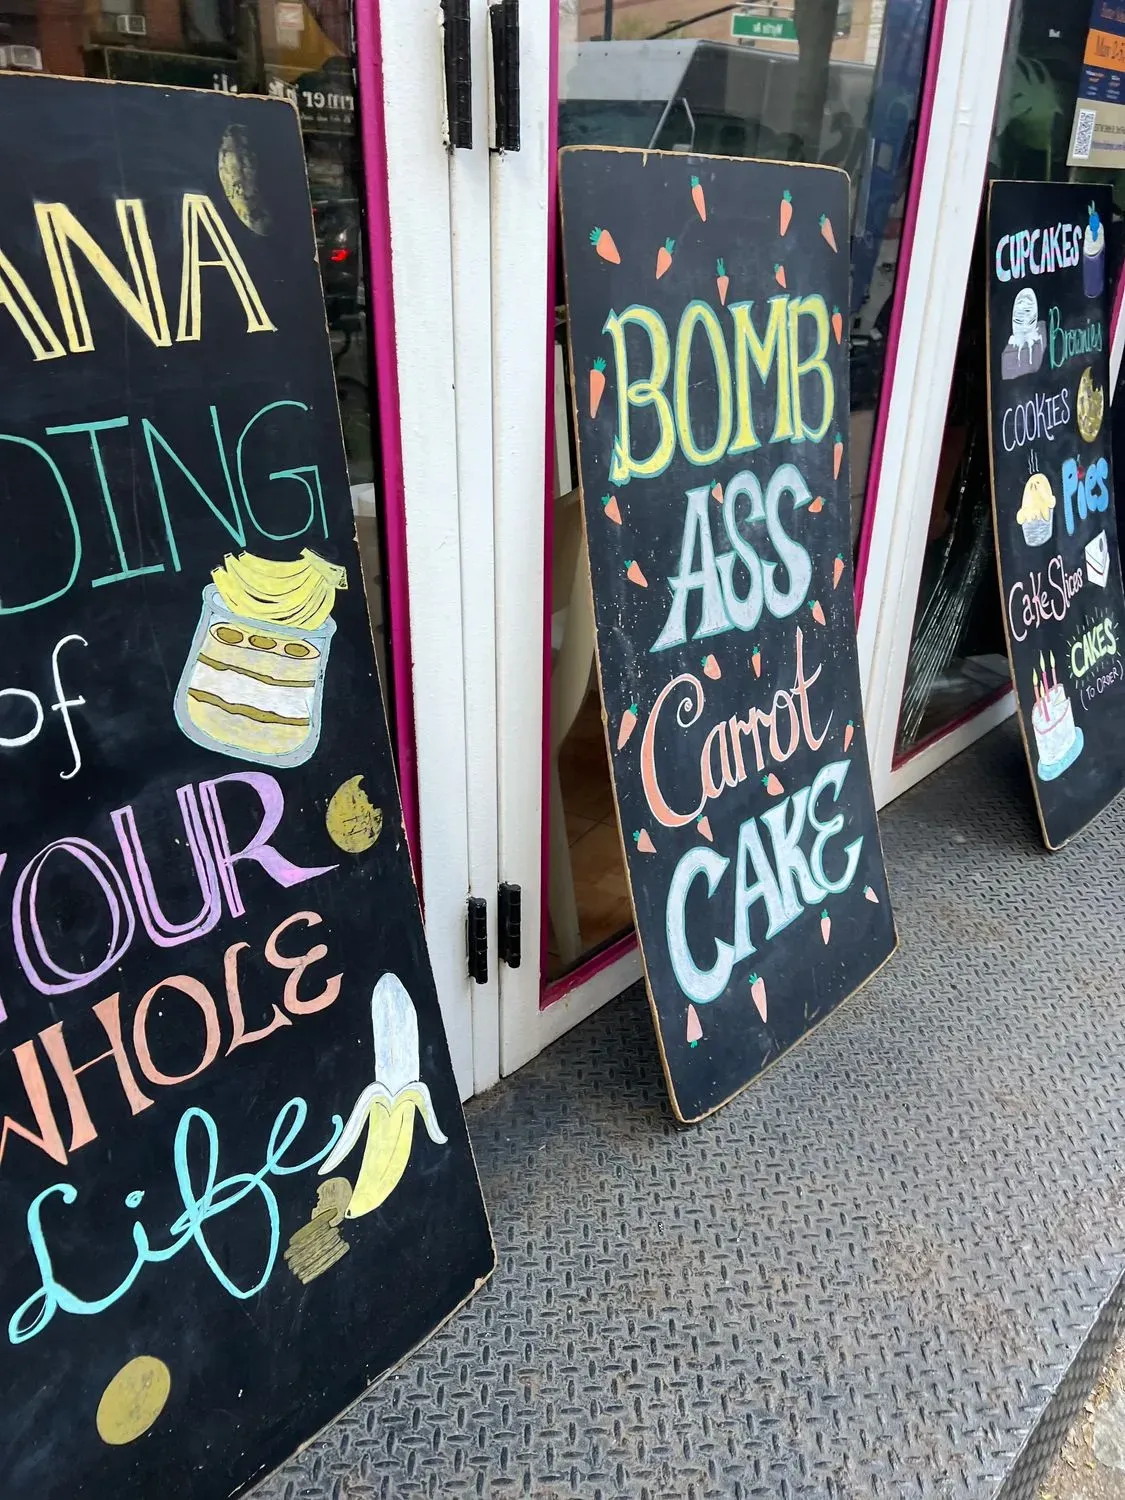 ANA
DING
of
YOUR
WHOLE
Life
BOMB
ASS
Carrot
CAKE
CUPCAKES
Brownies
COOKIES
Pies
Cake Slices
CAKES
(TO ORDER)